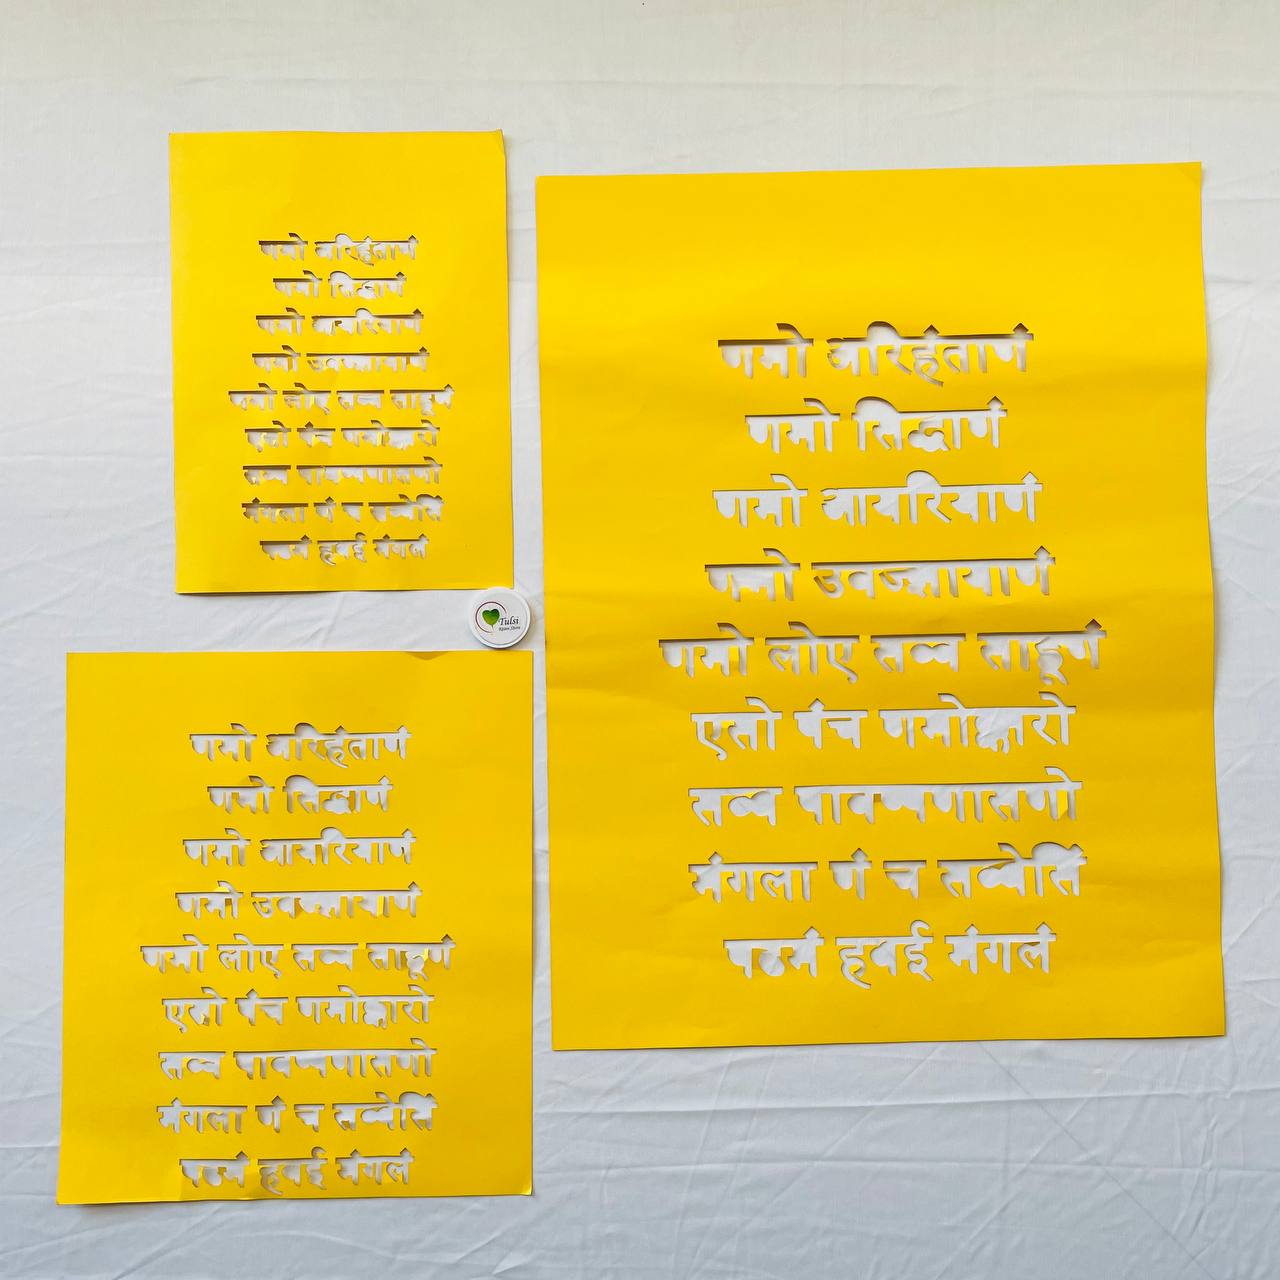 णमो अरिहंताणं
णमो सिद्धाणं
णमो आयरियाणं
णमो उवज्झायाणं
णमो लोए सव्व साहूणं
एसो पंच णमोक्कारो
सव्व पावप्पणासणो
मंगला णं च सव्वेसिं
पढमं हवई मंगलं
Tulsi
Resin Store
णमो अरिहंताणं
णमो सिद्धाणं
णमो आयरियाणं
णमो उवज्झायाणं
णमो लोए सव्व साहूणं
एसो पंच णमोक्कारो
सव्व पावप्पणासणो
मंगला णं च सव्वेसिं
पढमं हवई मंगलं
णमो अरिहंताणं
णमो सिद्धाणं
णमो आयरियाणं
णमो उवज्झायाणं
णमो लोए सव्व साहूणं
एसो पंच णमोक्कारो
सव्व पावप्पणासणो
मंगला णं च सव्वेसिं
पढमं हवई मंगलं